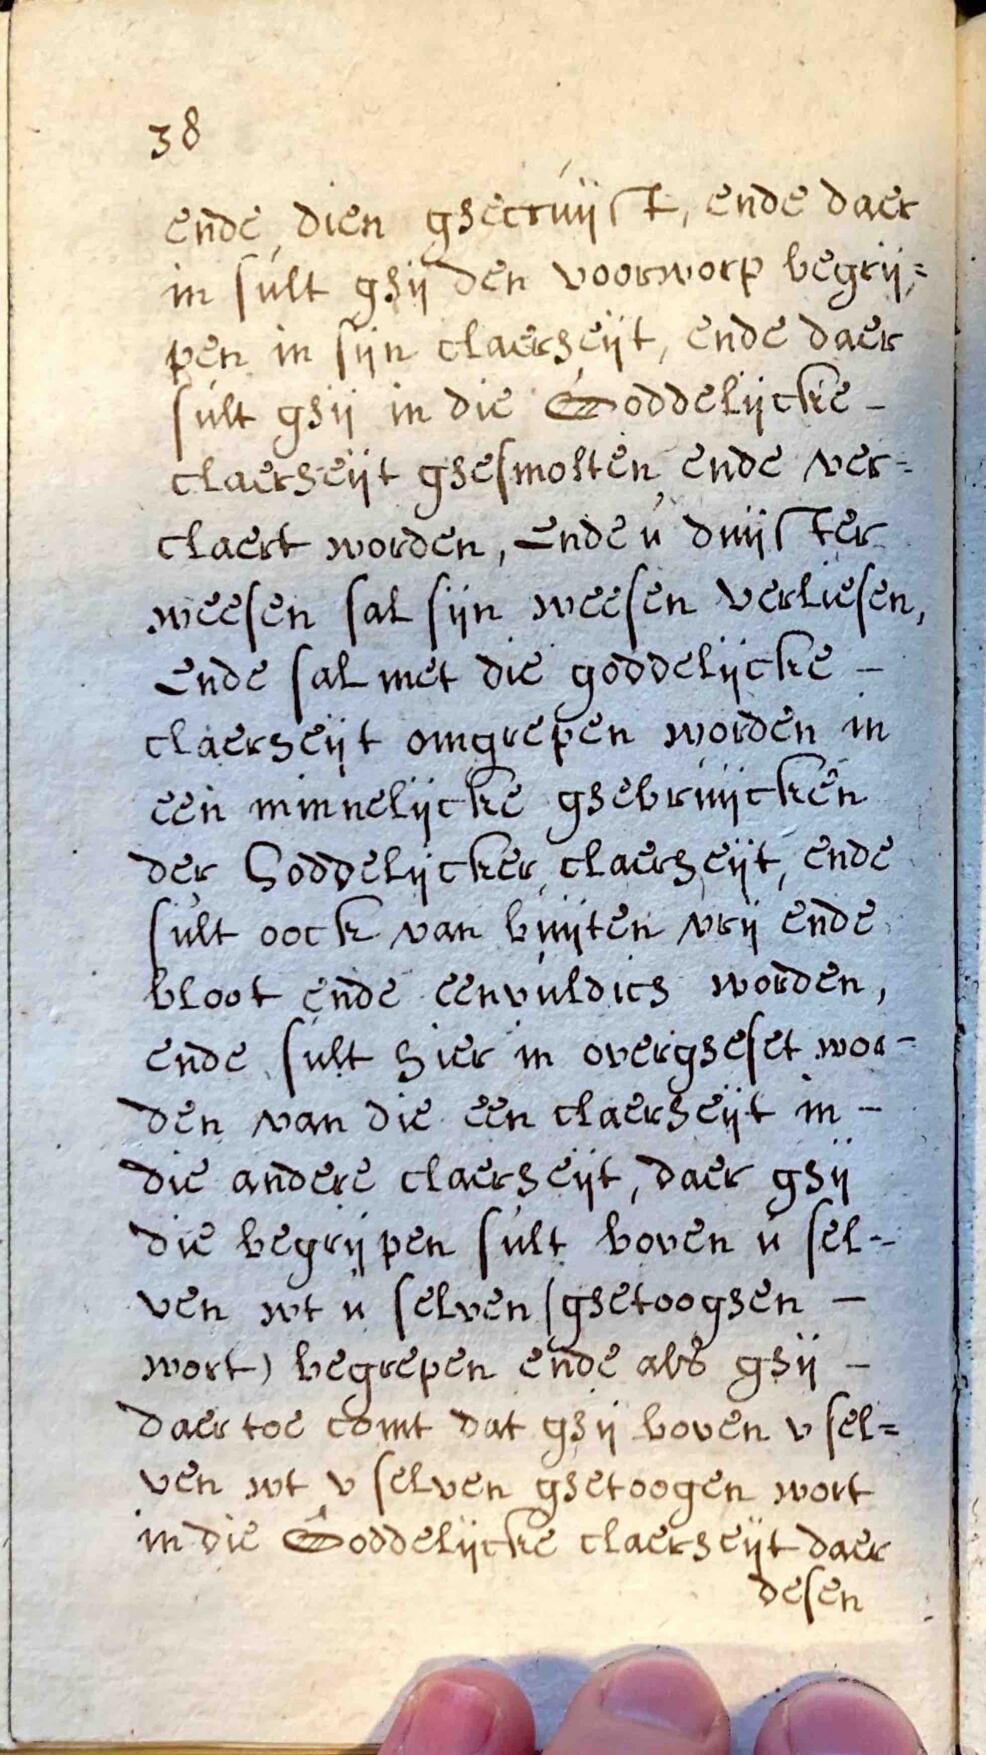 38
ende dien ghecruijst, ende daer
in sult ghij den voorworp begrij=
pen in sijn claerheijt, ende daer
sult ghij in die Goddelijcke -
claerheijt ghesmolten ende ver=
claert worden, Ende u duijster
weesen sal sijn weesen verliesen,
Ende sal met die goddelijcke -
claerheijt omgrepen worden in
een minnelijcke ghebruijcken
der Goddelijcker claerheijt, ende
sult oock van buijten vrij ende
bloot ende eenvuldich worden,
ende sult hier in overgheset wor-
den van die een claerheijt in -
die andere claerheijt, daer ghij
die begrijpen sult boven u sel-
ven wt u selven (ghetooghen -
wort) begrepen ende als ghij -
daer toe comt dat ghij boven v sel=
ven wt v selven ghetoogen wort
in die Goddelijcke claerheijt daer
desen